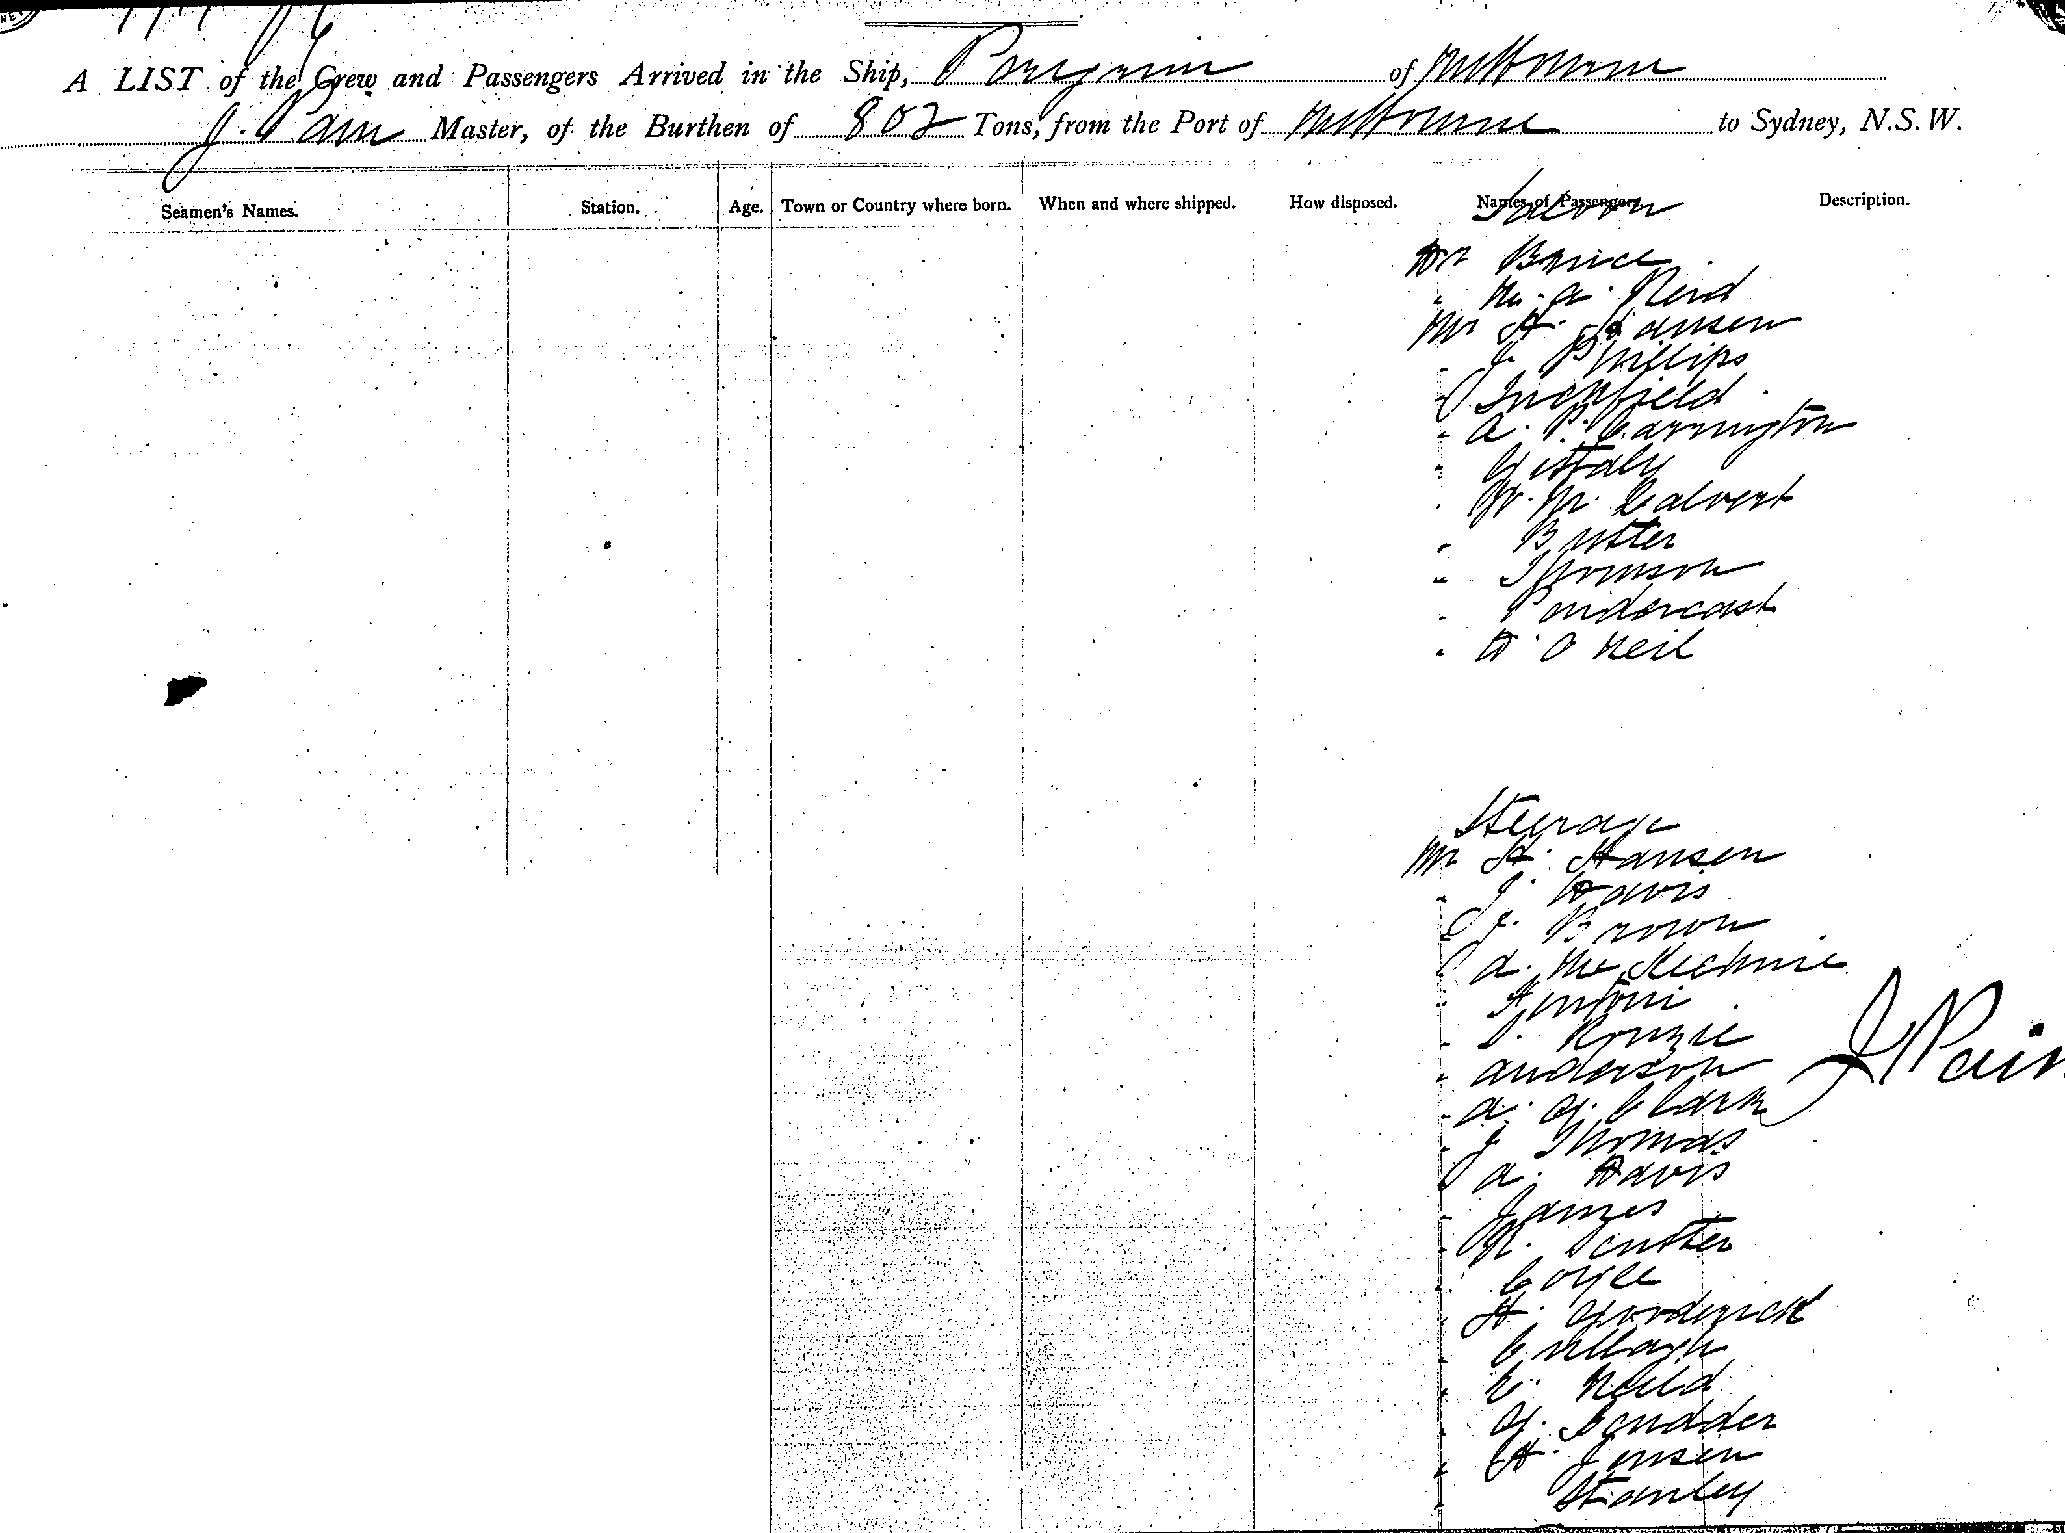 A LIST of the Crew and Passengers Arrived in the Ship, Peregrine of Melbourne
J. Pain Master, of the Burthen of 802 Tons, from the Port of Melbourne to Sydney, N.S.W.
Seamen's Names. Station. Age. Town or Country where born. When and where shipped. How disposed. Names of Passengers. Description.
Saloon
Dr Brice
" M. A. Reid
Mr H. Hansen
" J. Phillips
" Inchfield
" A. P. Carrington
"
" W. M. Calvert
" Butter
" Thomson
" Pendercast
" D O Neil
Steerage
Mr H. Hansen
" J. Davis
" J. Brown
" A. Mc Kechnie
" Antoni
" Kenzie
" Anderson
" A. G. Clark
" J Thomas
" A. Davis
" James
" R. Scutter
" Coyle
" H. Goodrick
" Cullagh
" Neild
" G. Scudder
" H. Jensen
" Stanley
J Pain